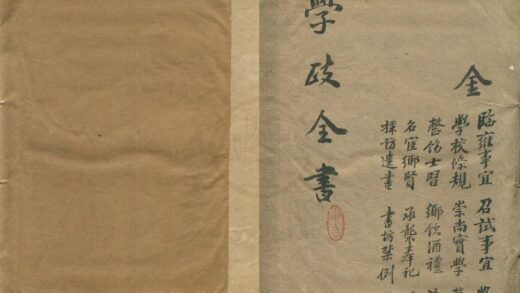 金
臨雍事宜 召試事宜
學校條規 崇尚實學
整飭士習 鄉飲酒禮
名宦鄉賢 承襲奉祀
採訪遺書 書坊禁例
學政全書